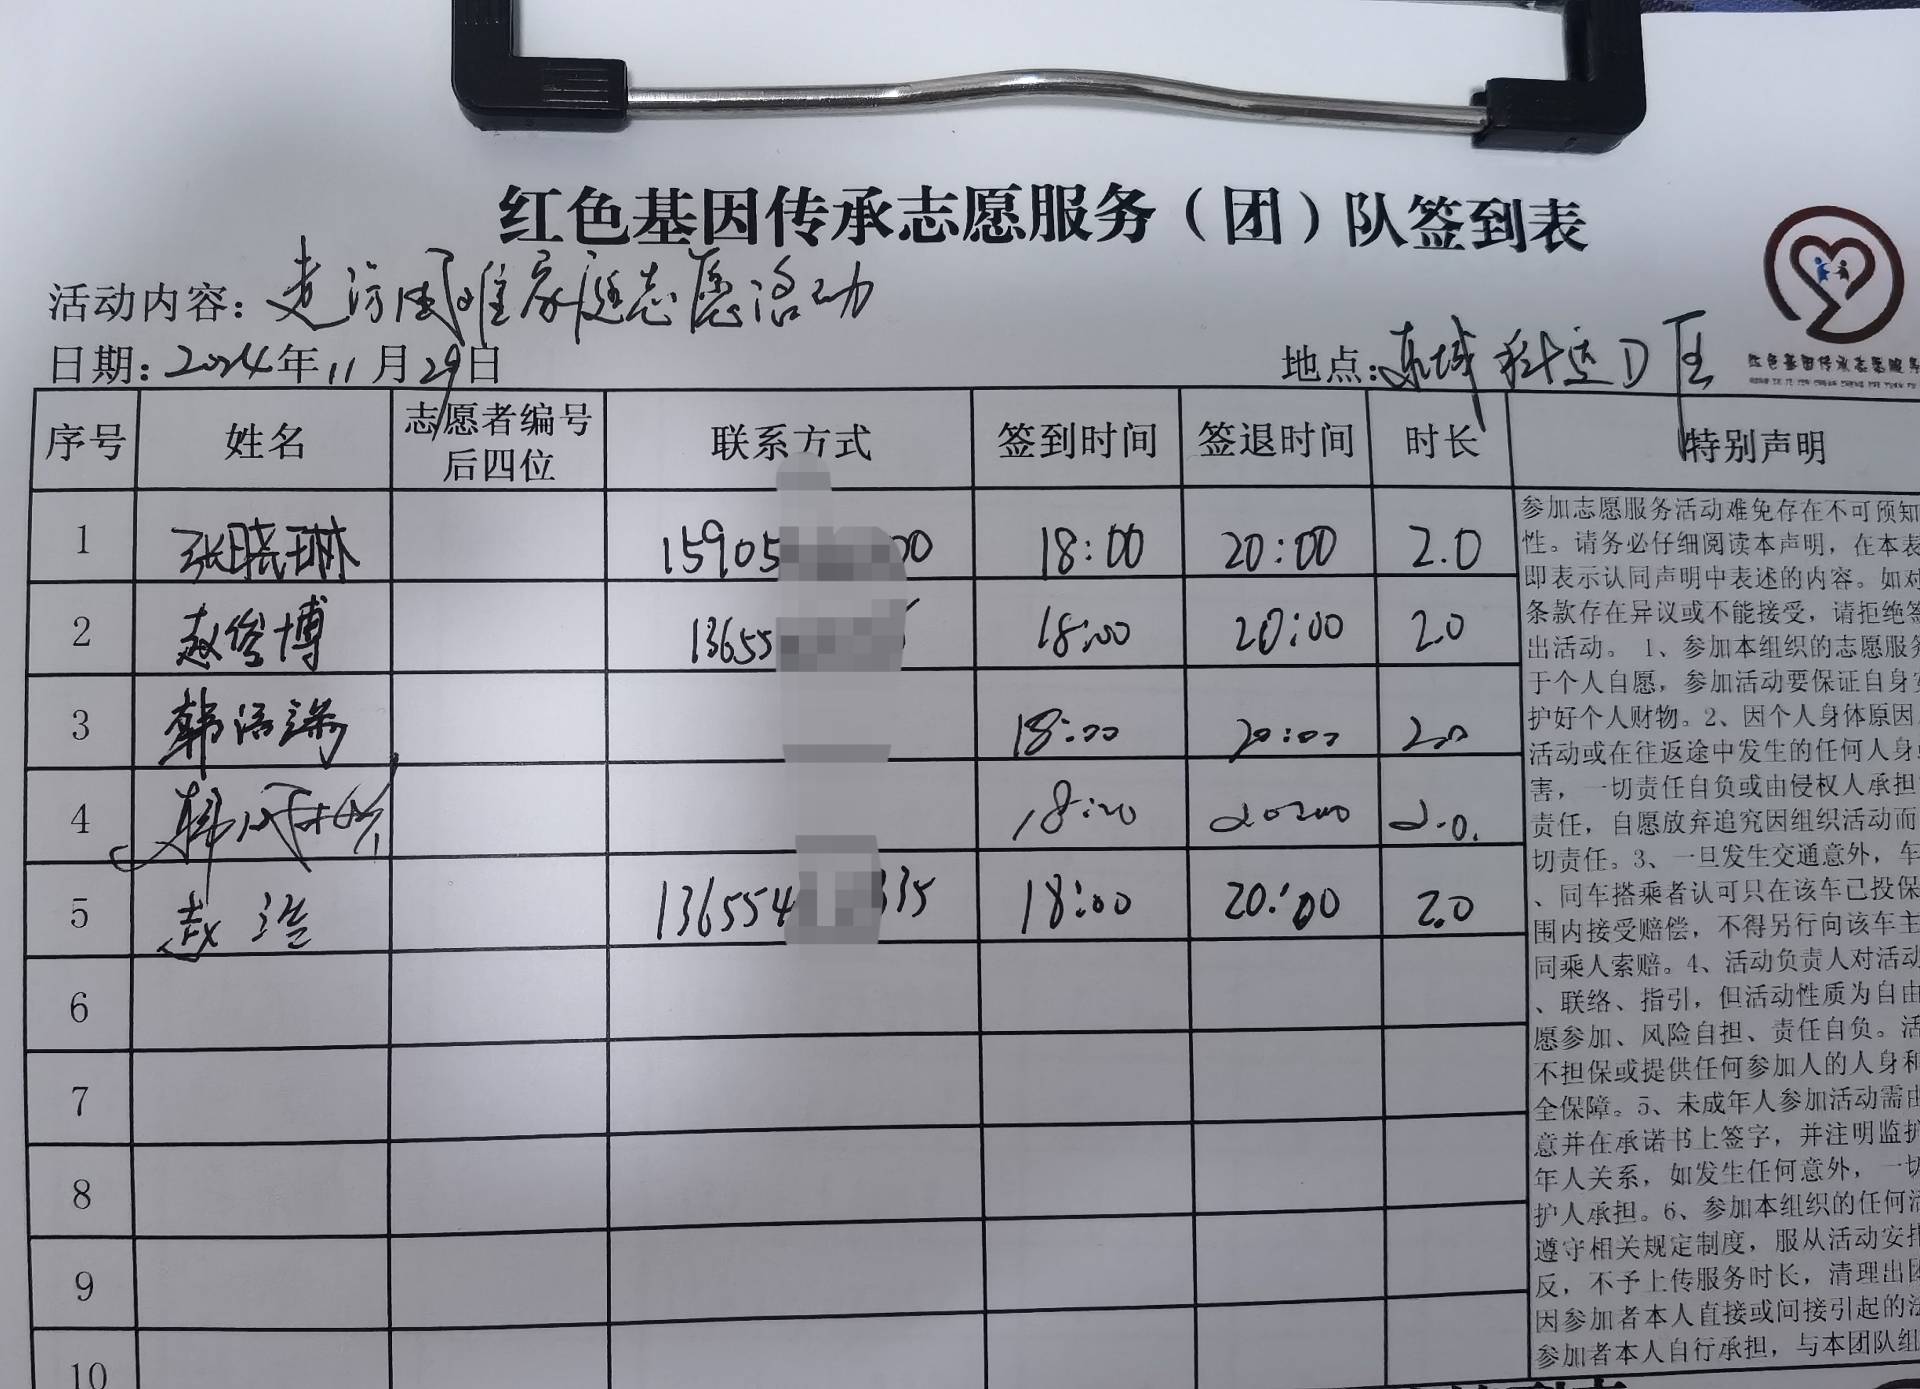 红色基因传承志愿服务（团）队签到表
活动内容：走访困难家庭志愿活动
日期：2024年11月29日
地点：东城科达D区
红色基因传承志愿服务
序号 姓名 志愿者编号后四位 联系方式 签到时间 签退时间 时长 特别声明
1 张晓琳 15905 00 18:00 20:00 2.0
2 赵俊博 13655 18:00 20:00 2.0
3 韩 18:00 20:00 2.0
4 韩 18:00 20:00 2.0.
5 赵 136554 335 18:00 20:00 2.0
6
7
8
9
10
参加志愿服务活动难免存在不可预知
性。请务必仔细阅读本声明，在本表
即表示认同声明中表述的内容。如对
条款存在异议或不能接受，请拒绝签
出活动。 1、参加本组织的志愿服务
于个人自愿，参加活动要保证自身安
护好个人财物。2、因个人身体原因
活动或在往返途中发生的任何人身
害，一切责任自负或由侵权人承担
责任，自愿放弃追究因组织活动而
切责任。3、一旦发生交通意外，车
、同车搭乘者认可只在该车已投保
围内接受赔偿，不得另行向该车主
同乘人索赔。4、活动负责人对活动
、联络、指引，但活动性质为自由
愿参加、风险自担、责任自负。活
不担保或提供任何参加人的人身和
全保障。5、未成年人参加活动需由
意并在承诺书上签字，并注明监护
年人关系，如发生任何意外，一切
护人承担。6、参加本组织的任何活
遵守相关规定制度，服从活动安排
反，不予上传服务时长，清理出团
因参加者本人直接或间接引起的法
参加者本人自行承担，与本团队组